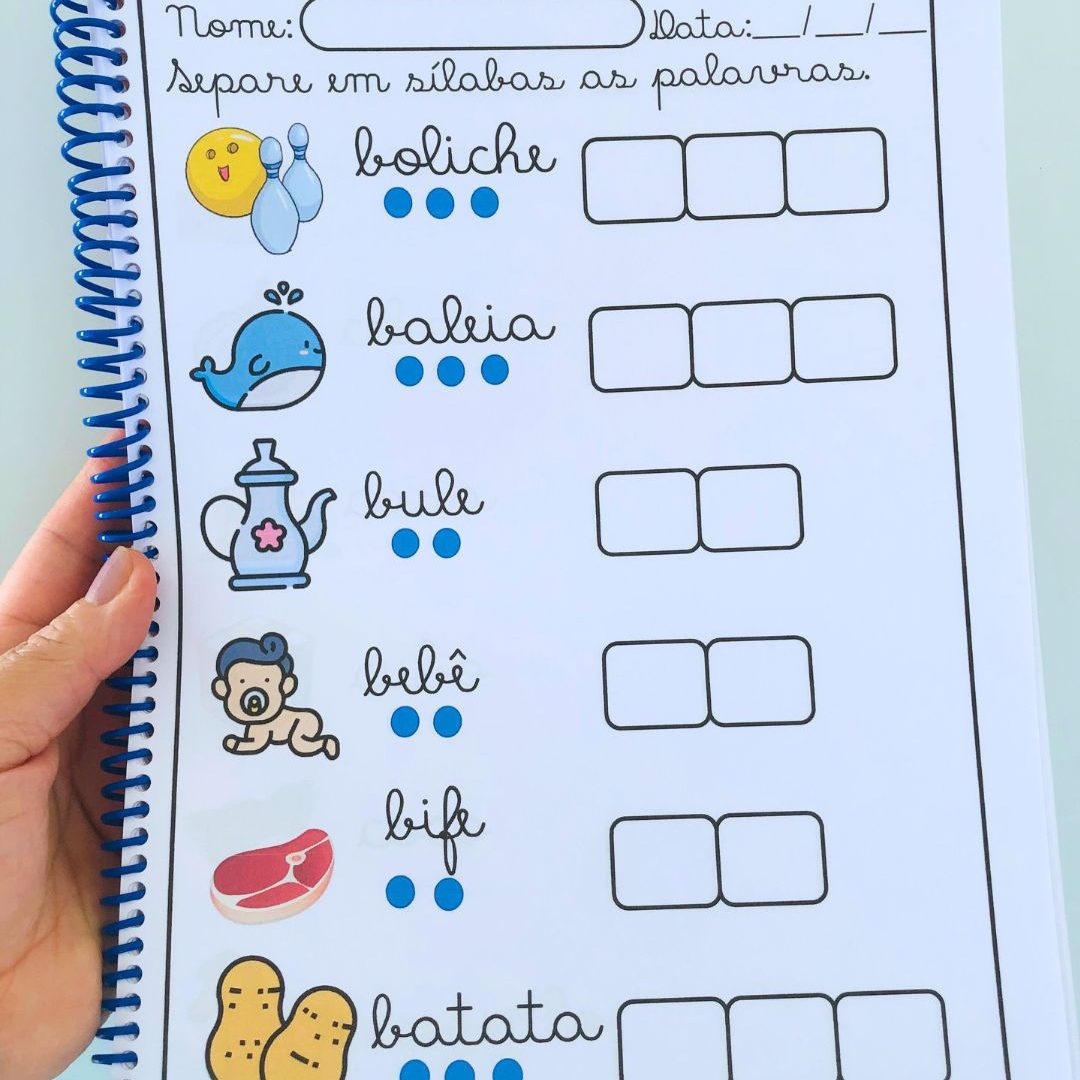 Nome: Data:__/__/__
Separe em sílabas as palavras.
boliche
baleia
bule
bebê
bife
batata